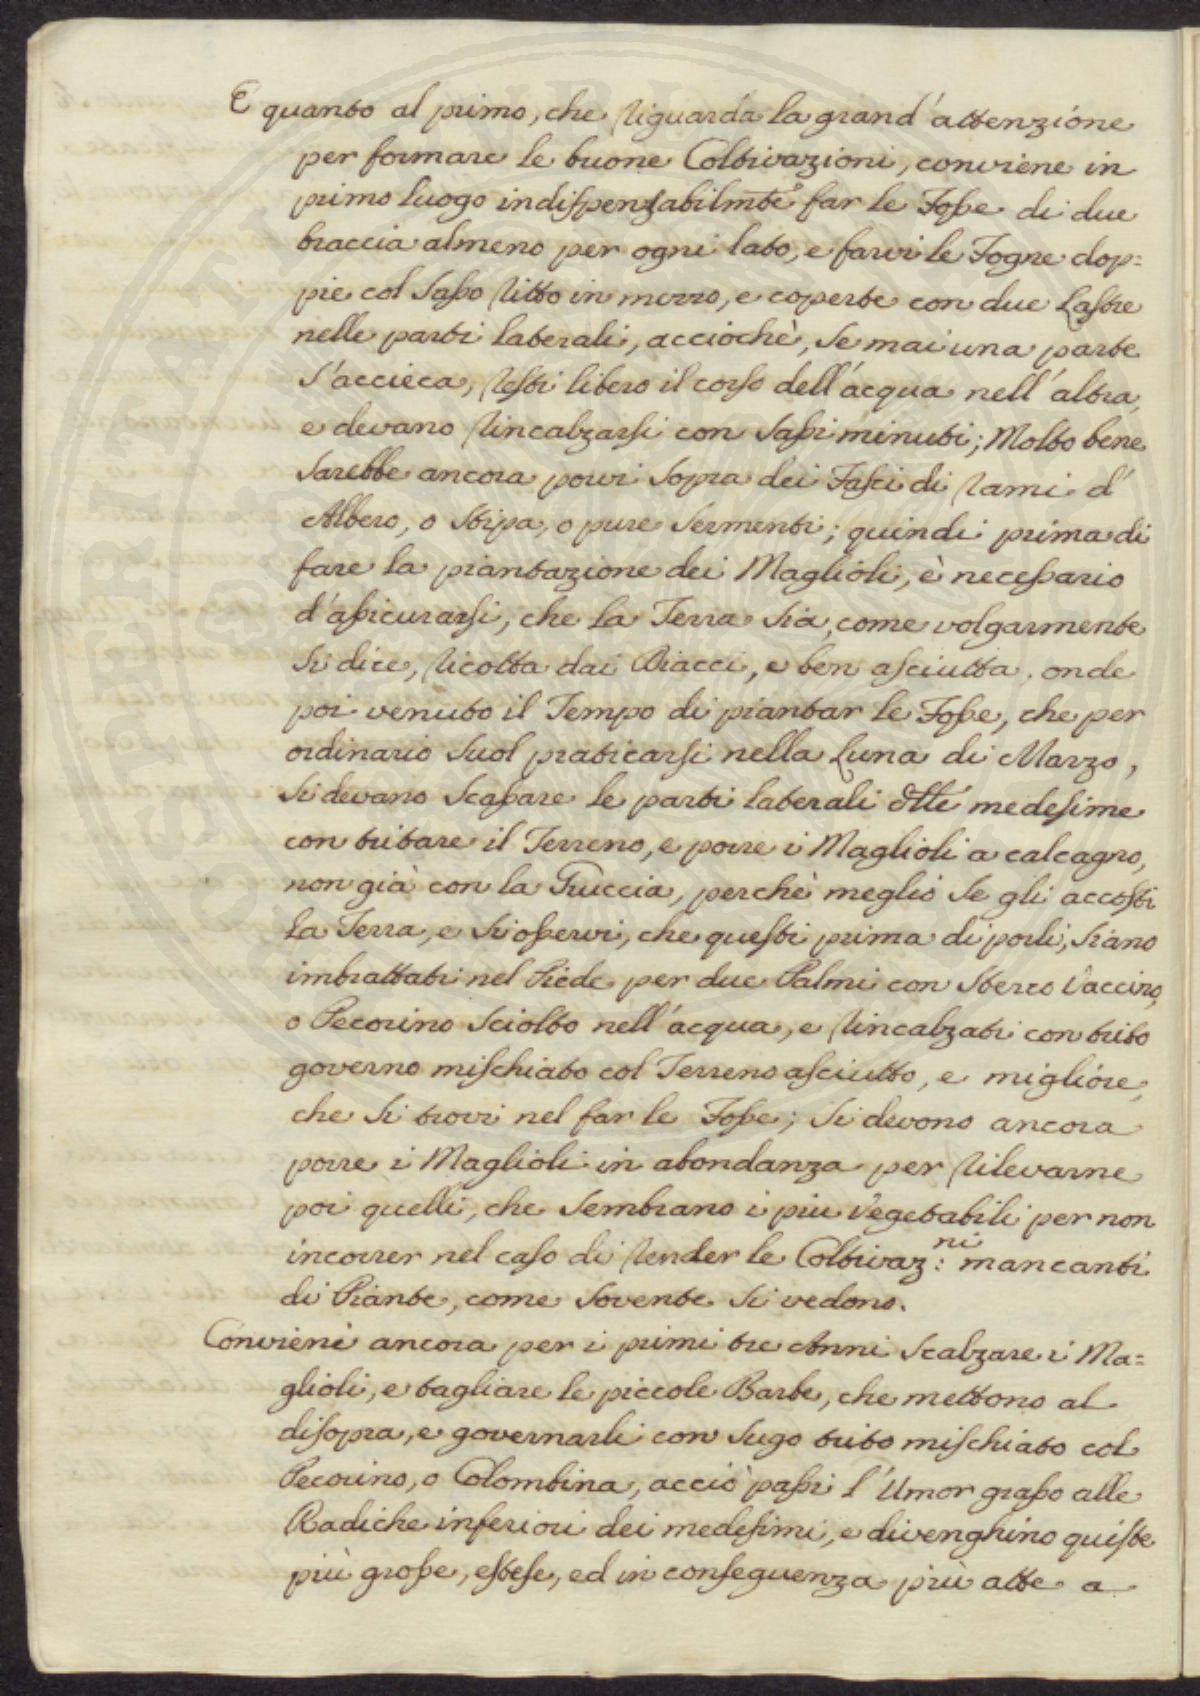 E quanto al primo, che riguarda la grand'attenzione
per formare le buone Coltivazioni, conviene in
primo luogo indispensabilmte far le Fosse di due
braccia almeno per ogni lato, e farvi le Fogne dop=
pie col Sasso ritto in mezzo, e coperte con due Lastre
nelle parti laterali, acciochè, se mai una parte
s'accieca, resti libero il corso dell'acqua nell'altra,
e devano rincalzarsi con Sassi minuti; Molto bene
sarebbe ancora porvi sopra dei Fasci di rami d'
Albero, o Stipa, o pure Sermenti; quindi prima di
fare la piantazione dei Maglioli, è necessario
d'assicurarsi, che la Terra sia, come volgarmente
si dice, ricotta dai Diacci, e ben asciutta. onde
poi venuto il Tempo di piantar le Fosse, che per
ordinario suol praticarsi nella Luna di Marzo,
si devano Scassare le parti laterali dlle medesime
con tritare il Terreno, e porre i Maglioli a calcagno,
non già con la Gruccia, perchè meglio se gli accosti
la Terra, e si osservi, che questi prima di porli, siano
imbrattati nel Piede per due Palmi con Sterco Vaccino,
o Pecorino Sciolto nell'acqua, e rincalzati con trito
governo mischiato col Terreno asciutto, e migliore,
che si trovi nel far le Fosse; si devono ancora
porre i Maglioli in abondanza per rilevarne
poi quelli, che sembrano i piu Vegetabili per non
incorrer nel caso di render le Coltivaz:ni mancanti
di Piante, come sovente si vedono.
Conviene ancora per i primi tre Anni Scalzare i Ma=
glioli, e tagliare le piccole Barbe, che mettono al
disopra, e governarli con Sugo trito mischiato col
Pecorino, o Colombina, acciò passi l'Umor grasso alle
Radiche inferiori dei medesimi, e divenghino quiste
più grosse, estese, ed in conseguenza più atte a